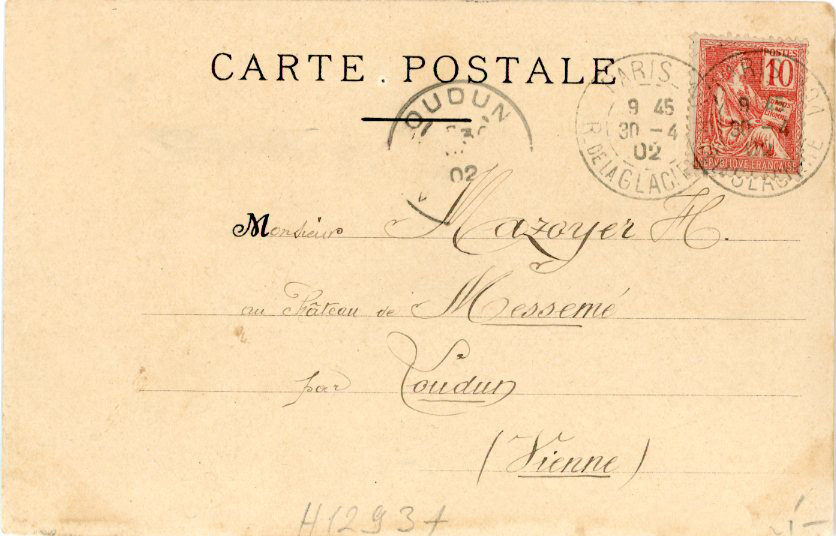 CARTE POSTALE
POSTES
10
RÉPUBLIQUE FRANÇAISE
PARIS
9 45
30 -4
02
R. DE LA GLACIÈRE
9 45
30 -4
LOUDUN
02
Monsieur Mazoyer H.
au Château de Messemé
par Loudun
(Vienne)
H12937